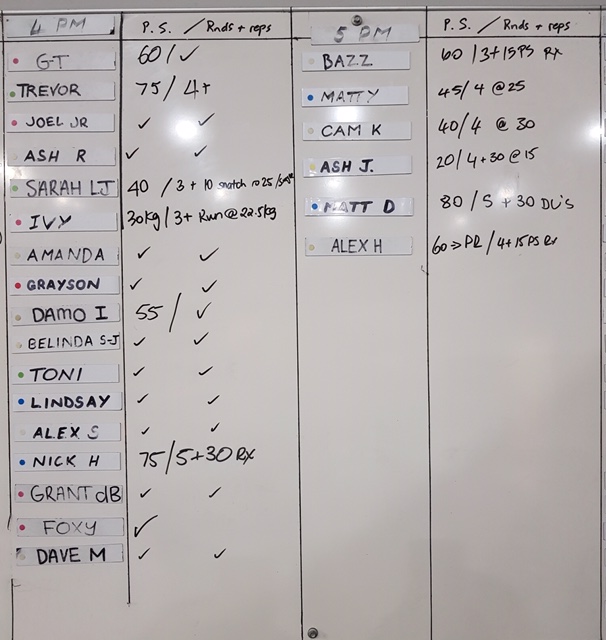 4 PM P.S. / Rnds + reps
GT 60 / ✓
TREVOR 75 / 4+
JOEL JR ✓ ✓
ASH R ✓ ✓
SARAH LJ 40 / 3 + 10 snatch @ 25
IVY 30kg / 3 + Run @ 22.5kg
AMANDA ✓ ✓
GRAYSON ✓ ✓
DAMO I 55 / ✓
BELINDA S-J ✓ ✓
TONI ✓ ✓
LINDSAY ✓ ✓
ALEX S ✓ ✓
NICK H 75 / 5+30 Rx
GRANT dB ✓ ✓
FOXY ✓
DAVE M ✓ ✓
5 PM P.S. / Rnds + reps
BAZZ 60 / 3+15PS Rx
MATTY 45 / 4 @ 25
CAM K 40 / 4 @ 30
ASH J. 20 / 4+30 @ 15
MATT D 80 / 5 + 30 DU's
ALEX H 60 => PR / 4+15PS Rx